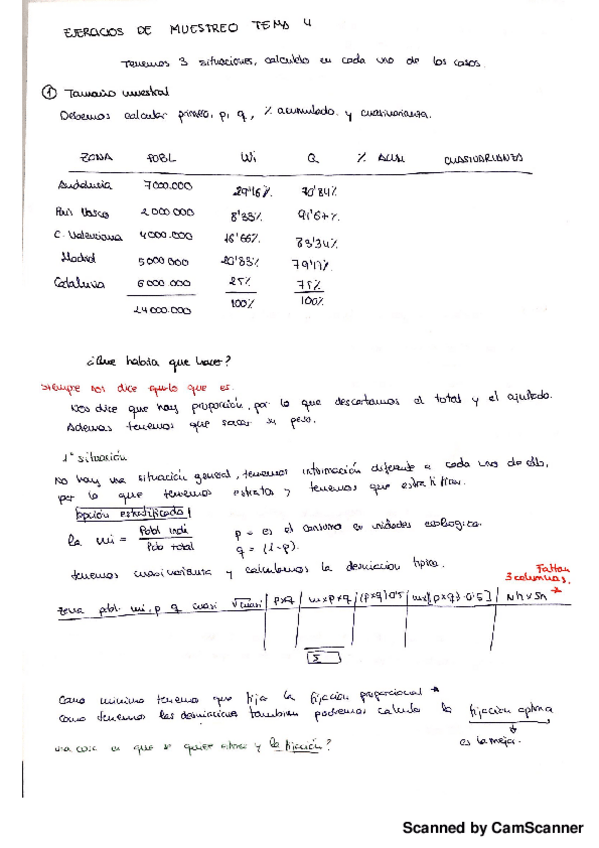 EJERCICIOS DE MUESTREO TEMA 4
Tenemos 3 situaciones, calculelo en cada uno de los casos.
① Tamaño muestral
Debemos calcular primero, p, q, % acumulado y cuasivarianza.
ZONA POBL Wi Q % ACUM CUASIVARIANZAS
Andalucia 7000.000 29'16%. 70'84%
País Vasco 2000000 8'33% 91'67%
C. Valenciana 4000.000 16'66% 83'34%
Madrid 5000000 20'83% 79'17%
Cataluña 6000000 25% 75%
24000.000 100% 100%
¿Que habría que hacer?
siempre nos dice que lo que es.
Nos dice que hay proporción, por lo que descartamos el total y el ajustado.
Ademas tenemos que sacar su peso.
1ª situación
No hay una situación general, tenemos información diferente a cada uno de ello,
por lo que tenemos estratos y tenemos que estratificar.
opción estratificado
la wi = Pobl indi / Pob total p = es el consumo en unidades
q = (1-p).
tenemos cuasivarianza y calculamos la desviacion tipica.
Faltan
3 columnas.
Zona pobl. wi, p q cuasi √cuasi | p×q | w×p×q | (p×q)0'5 | w×[(p×q)·0'5] | Nh×Sh *
Σ
Como minimo tenemos que fijar la fijación proporcional *
como tenemos las desviaciones tambien podremos calcular la fijación optima
es la mejor.
una cosa es que se quiera y la fijación?
Scanned by CamScanner